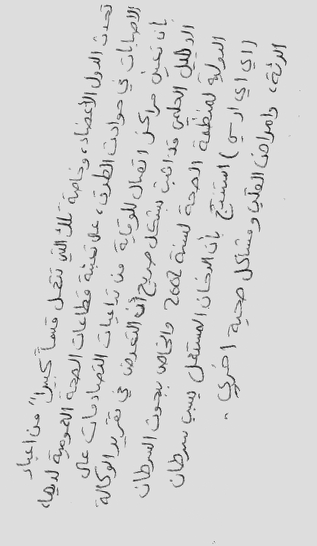 تحث الدول الأعضاء، وخاصة تلك التي تتحمل قسماً كبيراً من أعباء
الاصابات في حوادث الطرق، على تعبئة قطاعات الصحة العمومية لديها،
بأن تعين مراكز اتصال للوقاية من تداعيات التصادمات على
الدليل العلمي قد اثبت بشكل صريح أن التعرض في تقرير الوكالة
الدولية لمنظمة الصحة لسنة 2002 والخاص ببحوث السرطان
(اي اي ار سي) استنتج بأن الدخان المستعمل يسبب سرطان
الرئة، وامراض القلب ومشاكل صحية اخرى.